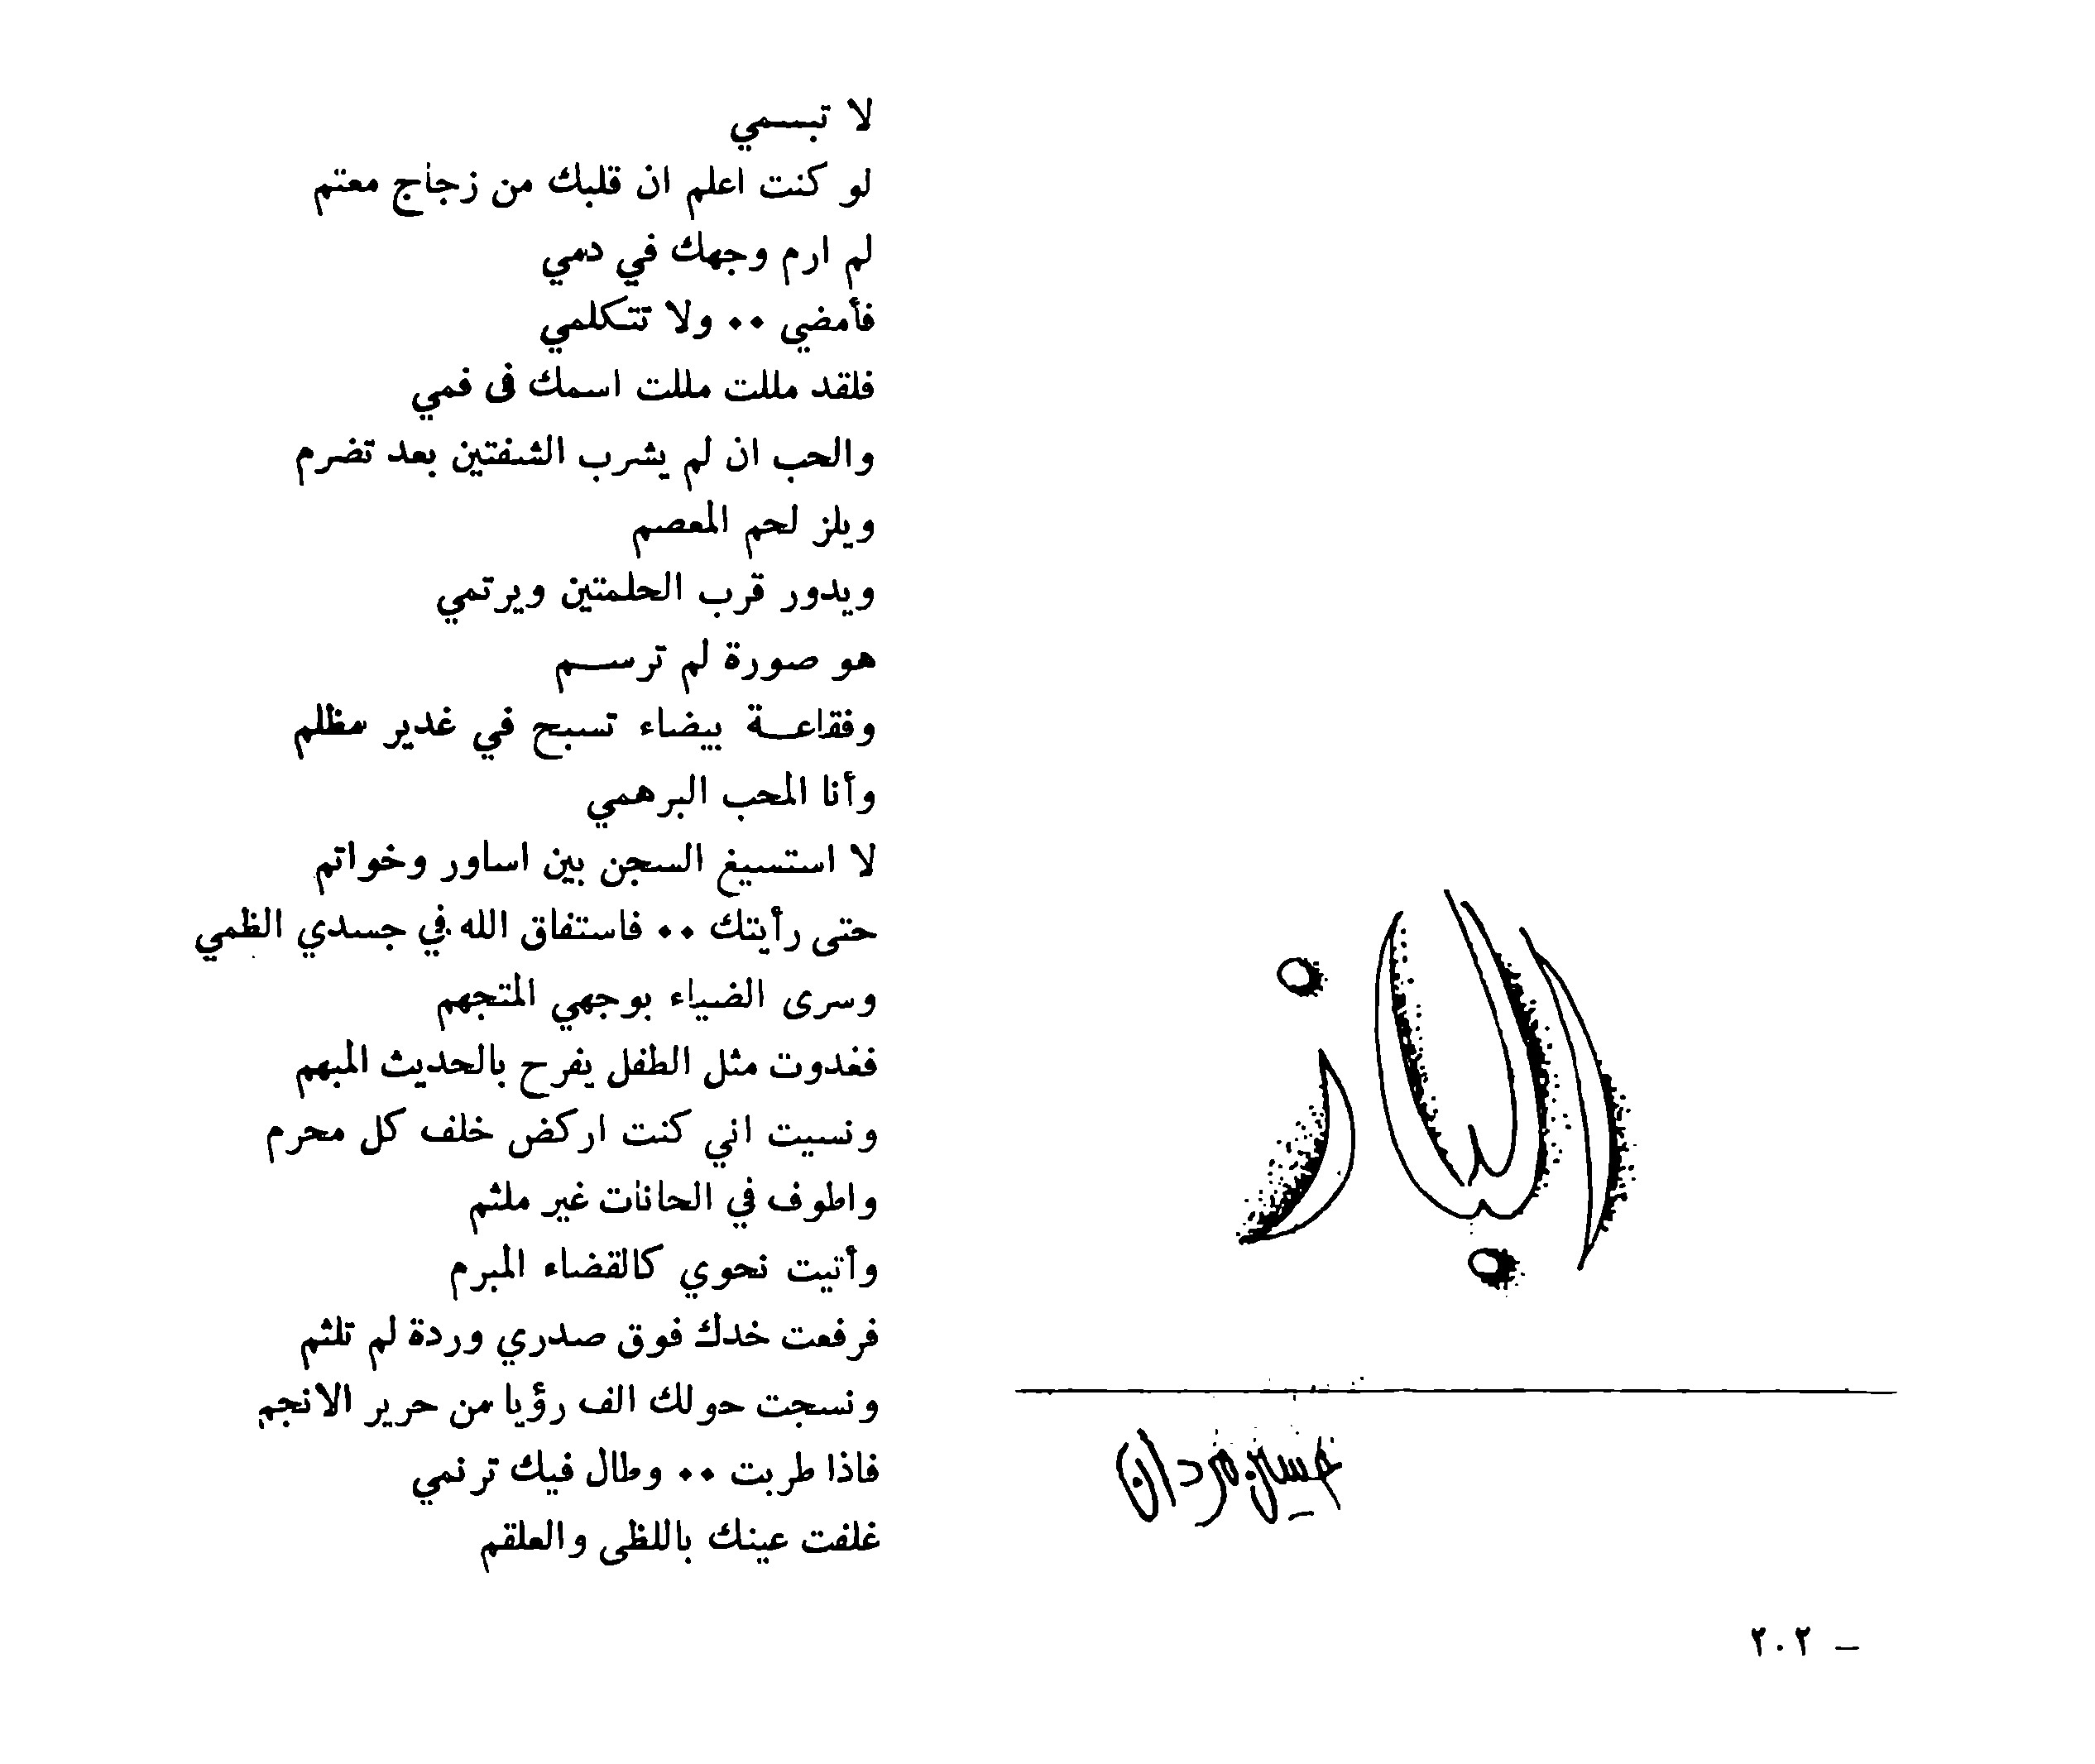 الباز
حسين مردان
لا تبسمي
لو كنت اعلم ان قلبك من زجاج معتم
لم ارم وجهك في دمي
فأمضي ٠٠ ولا تتكلمي
فلقد مللت مللت اسمك فى فمي
والحب ان لم يشرب الشفتين بعد تضرم
ويلز لحم المعصم
ويدور قرب الحلمتين ويرتمي
هو صورة لم ترسم
وفقاعة بيضاء تسبح في غدير مظلم
وأنا المحب البرهمي
لا استسيغ السجن بين اساور وخواتم
حتى رأيتك ٠٠ فاستفاق الله في جسدي الظمي
وسرى الضياء بوجهي المتجهم
فغدوت مثل الطفل يفرح بالحديث المبهم
ونسيت اني كنت اركض خلف كل محرم
واطوف في الحانات غير ملثم
وأتيت نحوي كالقضاء المبرم
فرفعت خدك فوق صدري وردة لم تلثم
ونسجت حولك الف رؤيا من حرير الانجم
فاذا طربت ٠٠ وطال فيك ترنمي
غلفت عينك باللظى والعلقم
٢٠٢ –